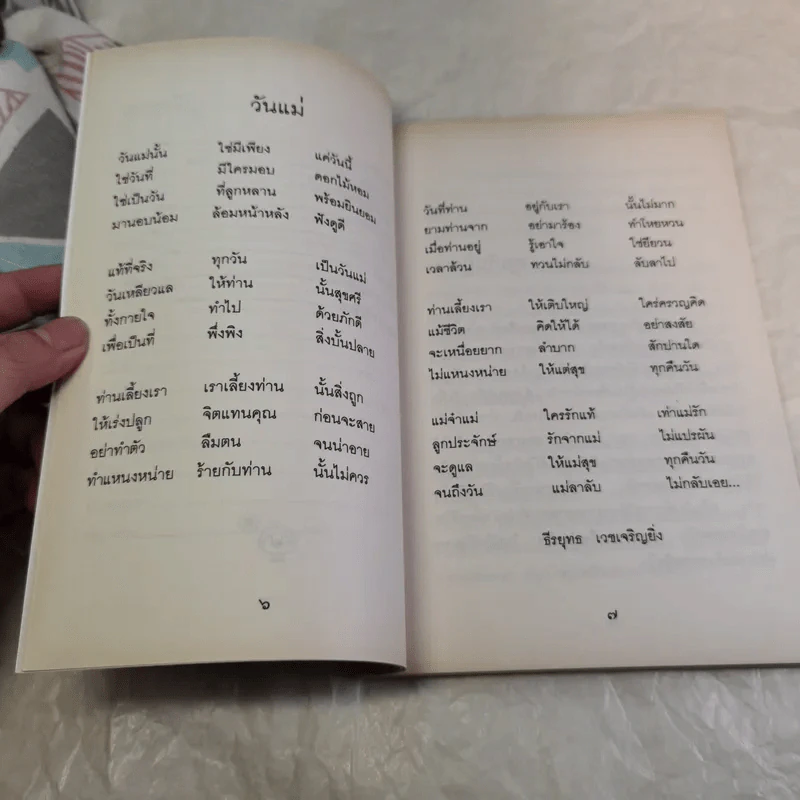 วันแม่
วันแม่นั้น ใช่มีเพียง แค่วันนี้
ใช่วันที่ มีใครมอบ ดอกไม้หอม
ใช่เป็นวัน ที่ลูกหลาน พร้อมยินยอม
มานอบน้อม ล้อมหน้าหลัง ฟังดูดี
แท้ที่จริง ทุกวัน เป็นวันแม่
วันเหลียวแล ให้ท่าน นั้นสุขศรี
ทั้งกายใจ ทำไป ด้วยภักดี
เพื่อเป็นที่ พึ่งพิง สิ่งบั้นปลาย
ท่านเลี้ยงเรา เราเลี้ยงท่าน นั้นสิ่งถูก
ให้เร่งปลูก จิตแทนคุณ ก่อนจะสาย
อย่าทำตัว ลืมตน จนน่าอาย
ทำแหนงหน่าย ร้ายกับท่าน นั้นไม่ควร
๖
วันที่ท่าน อยู่กับเรา นั้นไม่มาก
ยามท่านจาก อย่ามาร้อง ทำโหยหวน
เมื่อท่านอยู่ รู้เอาใจ ใช่ยียวน
เวลาล้วน ทวนไม่กลับ ลับลาไป
ท่านเลี้ยงเรา ให้เติบใหญ่ ใคร่ครวญคิด
แม้ชีวิต คิดให้ได้ อย่าสงสัย
จะเหนื่อยยาก ลำบาก สักปานใด
ไม่แหนงหน่าย ให้แต่สุข ทุกคืนวัน
แม่จ๋าแม่ ใครรักแท้ เท่าแม่รัก
ลูกประจักษ์ รักจากแม่ ไม่แปรผัน
จะดูแล ให้แม่สุข ทุกคืนวัน
จนถึงวัน แม่ลาลับ ไม่กลับเอย...
ธีรยุทธ เวชเจริญยิ่ง
๗